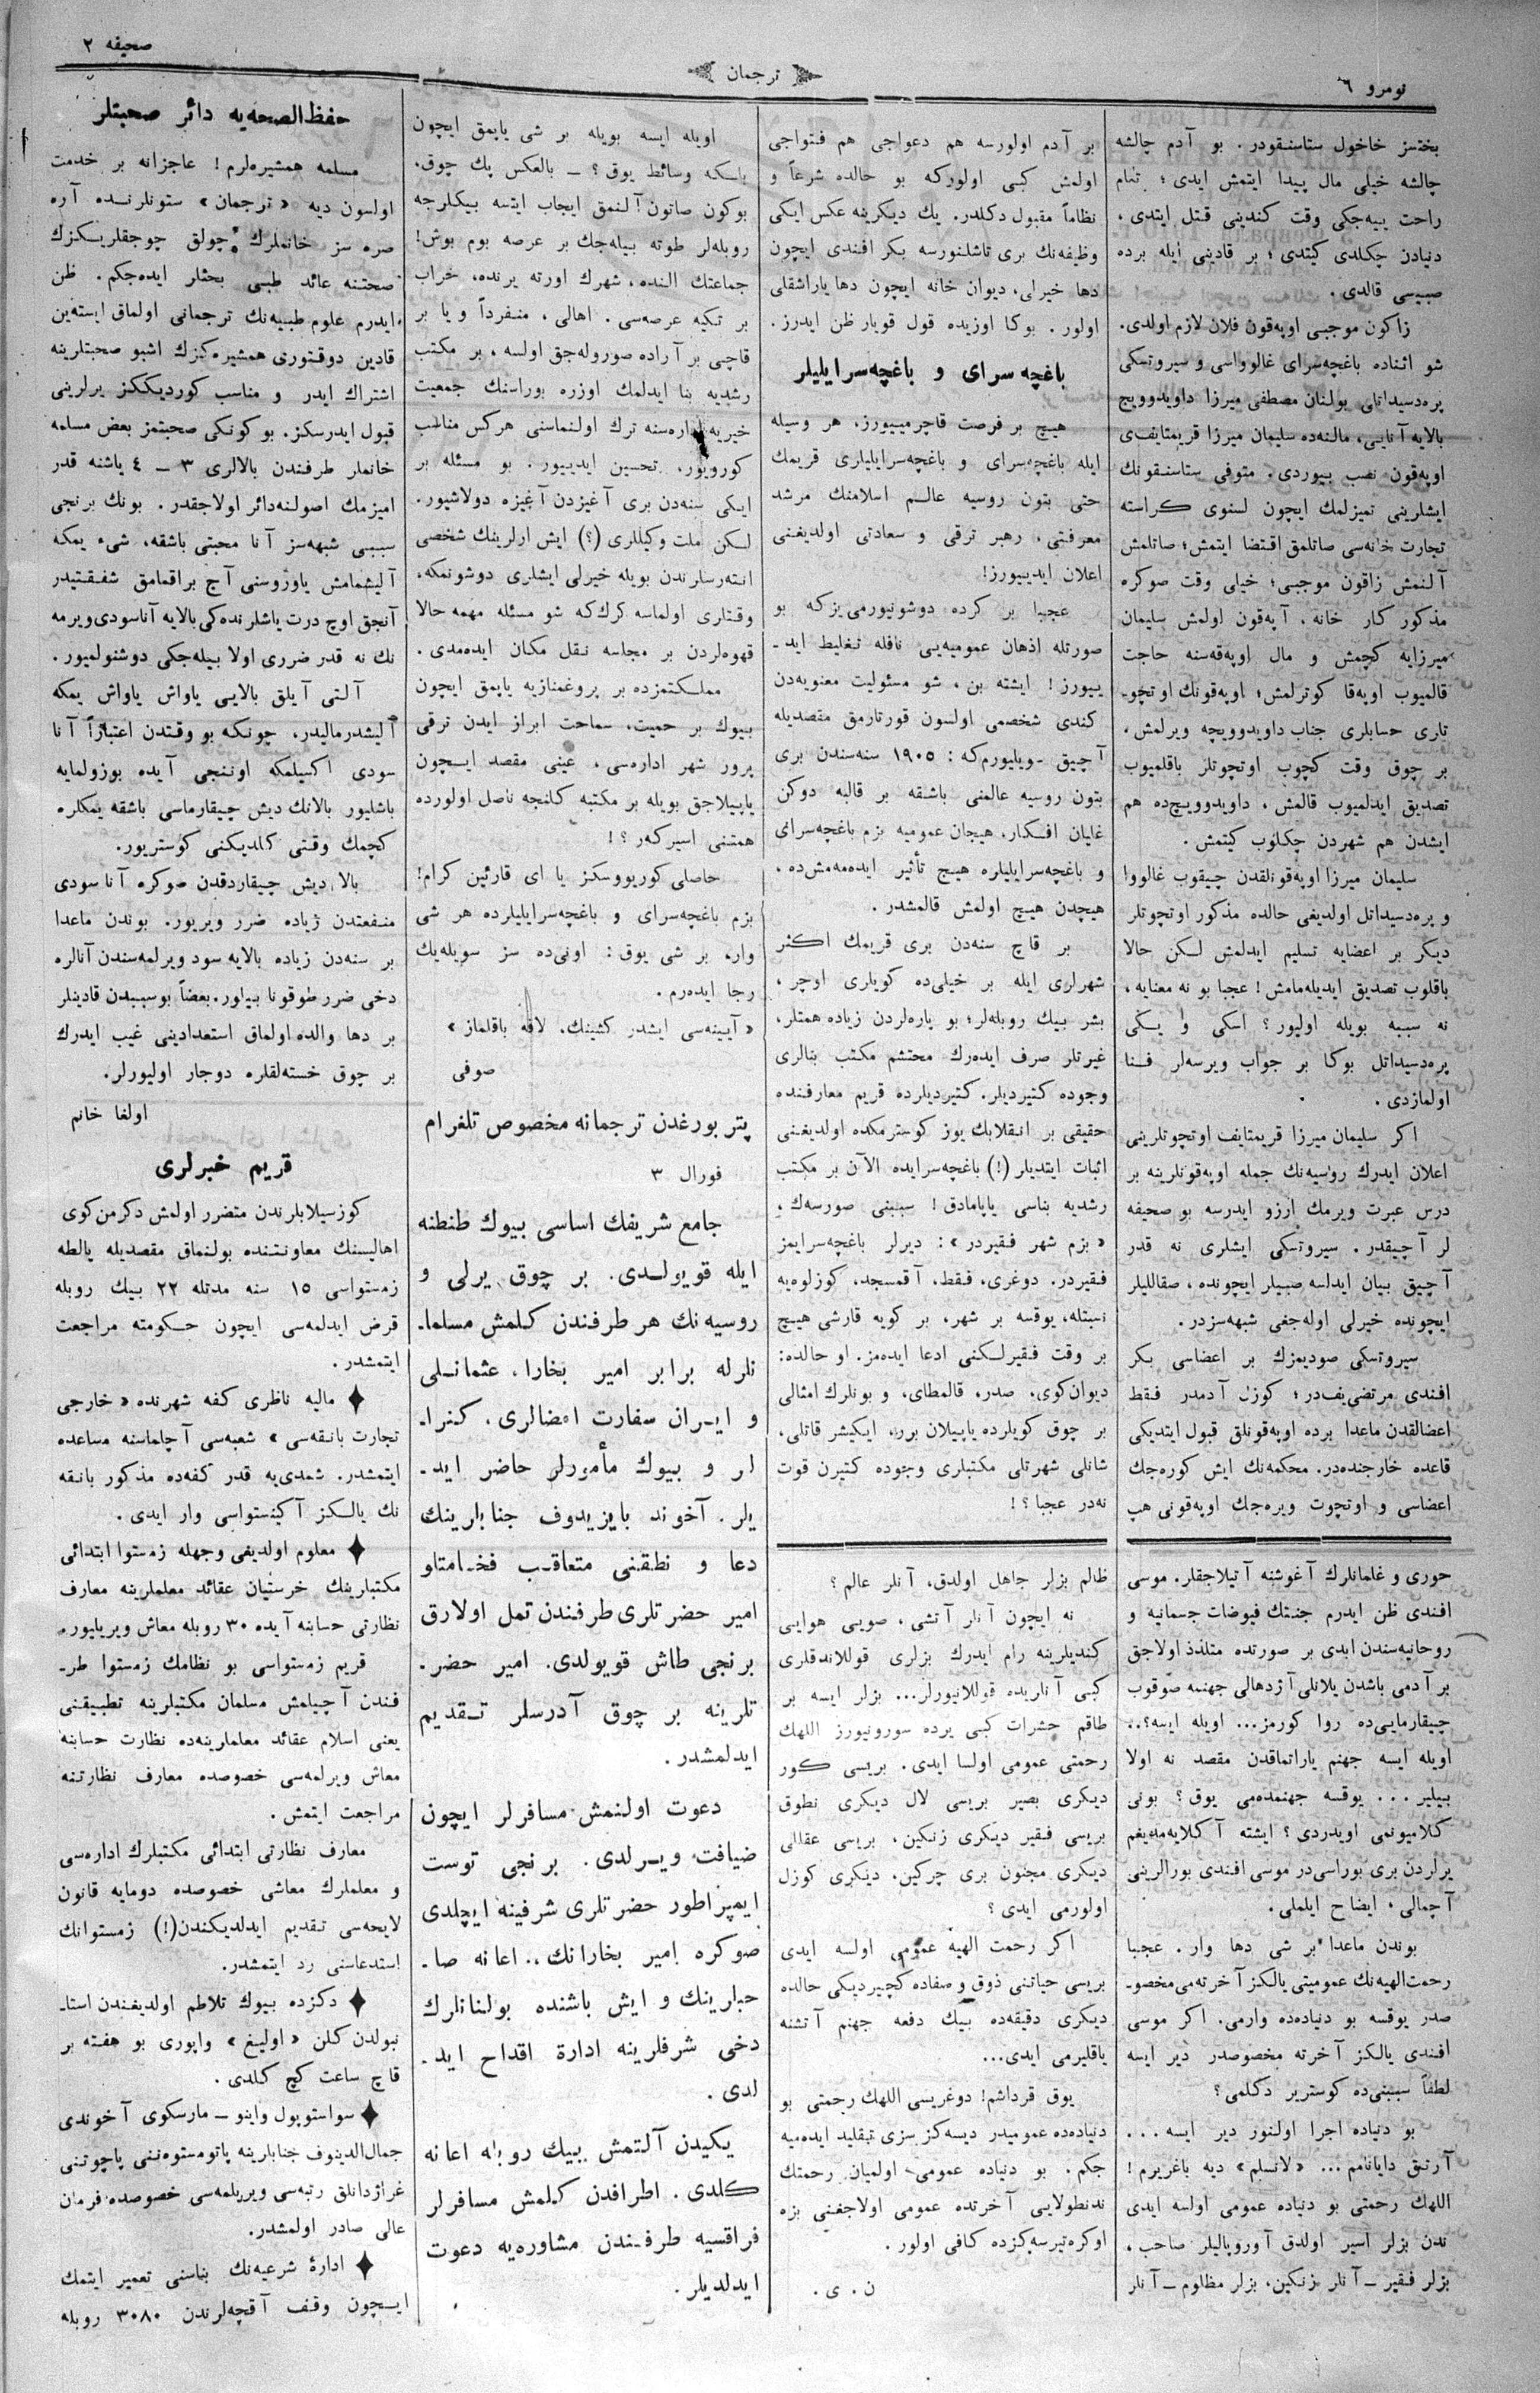 نومرو ٦
ترجمان
صحیفه ٢
بختسز خاخول ستاسنقودر. بو آدم چالشه
چالشه خیلی مال پیدا ایتمش ایدی؛ تمام
راحت ییه‌جکی وقت کندینی قتل ایتدی،
دنیادن چکلدی کیتدی؛ بر قادینی ایله برده
صبیسی قالدی.
زاکون موجبی اوپه‌قون فلان لازم اولدی.
شو اثناده باغچه‌سرای غالوواسی و سیروتسکی
پره‌دسیداتلی بولنان مصطفی میرزا داویدوویچ
بالایه آنایی، مالنه‌ده سلیمان میرزا قریمتایف‌ی
اوپه‌قون نصب بیوردی. متوفی ستاسنقونك
ایشلرینی تمیزلمك ایچون لسنوی کراسته
تجارت خانه‌سی صاتلمق اقتضا ایتمش؛ صاتلمش
آلنمش زاقون موجبی؛ خیلی وقت صوکره
مذکور کار خانه، آپه‌قون اولمش سلیمان
میرزایه کچمش و مال اوپه‌قه‌سنه حاجت
قالمیوب اوپه‌قا کوترلمش؛ اوپه‌قونك اوتچو-
تاری حسابلری جناب داویدوویچه ویرلمش،
بر چوق وقت کچوب اوتچوتلر باقلمیوب
تصدیق ایدلمیوب قالمش، داویدوویچ‌ده هم
ایشدن هم شهردن چکلوب کیتمش.
سلیمان میرزا اوپه‌قونلقدن چیقوب غالووا
و پره‌دسیداتل اولدیغی حالده مذکور اوتچوتلر
دیکر بر اعضایه تسلیم ایدلمش لکن حالا
باقلوب تصدیق ایدیله‌مامش! عجبا بو نه معنایه،
نه سببه بویله اولیور؟ اسکی و یکی
پره‌دسیداتل بوکا بر جواب ویرسه‌لر فنا
اولمازدی.
اکر سلیمان میرزا قریمتایف اوتچوتلرینی
اعلان ایدرك روسیه‌نك جمله اوپه‌قونلرینه بر
درس عبرت ویرمك ارزو ایدرسه بو صحیفه
لر آچیقدر. سیروتسکی ایشلری نه قدر
آچیق بیان ایدلسه صبیلر ایچونده، صقاللیلر
ایچونده خیرلی اوله‌جغی شبهه‌سزدر.
سیروتسکی صودیمزك بر اعضاسی بکر
افندی مرتضی‌یف‌در؛ کوزل آدمدر فقط
اعضالقدن ماعدا برده اوپه‌قونلق قبول ایتدیکی
قاعده خارجنده‌در. محکمه‌نك ایش کوره‌جك
اعضاسی و اوتچوت ویره‌جك اوپه‌قونی هپ
بر آدم اولورسه هم دعواجی هم فتواجی
اولمش کبی اولورکه بو حالده شرعاً و
نظاماً مقبول دکلدر. یك دیکرینه عکس ایکی
وظیفه‌نك بری تاشلنورسه بکر افندی ایچون
دها خیرلی، دیوان خانه ایچون دها یاراشقلی
اولور. بوکا اوزیده قول قویار ظن ایدرز.
باغچه سرای و باغچه‌سرایلیلر
هیچ بر فرصت قاچرمییورز، هر وسیله
ایله باغچه‌سرای و باغچه‌سرایلیاری قریمك
حتی بتون روسیه عالم اسلامنك مرشد
معرفتی، رهبر ترقی و سعادتی اولدیغنی
اعلان ایدییورز!
عجبا بر کره دوشونیورمی‌یزکه بو
صورتله اذهان عمومیه‌یی نافله تغلیط اید-
ییورز! ایشته بن، شو مسئولیت معنویه‌دن
کندی شخصمی اولسون قورتارمق مقصدیله
آچیق سویلیورم‌که: ١٩٠٥ سنه‌سندن بری
بتون روسیه عالمنی باشقه بر قالبه دوکن
غلیان افکار، هیجان عمومیه بزم باغچه‌سرای
و باغچه‌سرایلیلره هیچ تأثیر ایده‌مه‌مش‌ده،
هیچدن هیچ اولمش قالمشدر.
بر قاچ سنه‌دن بری قریمك اکثر
شهرلری ایله بر خیلی‌ده کویلری اوچر،
بشر بیك روبله‌لر؛ بو پاره‌لردن زیاده همتلر،
غیرتلر صرف ایده‌رك محتشم مکتب بنالری
وجوده کتیردیلر. کتیردیلرده قریم معارفنده
حقیقی بر انقلابك یوز کوسترمکده اولدیغنی
اثبات ایتدیلر (!) باغچه‌سرایده الآن بر مکتب
رشدیه بناسی یاپامادق! سببنی صورسه‌ك،
«بزم شهر فقیردر»: دیرلر باغچه‌سرایمز
فقیردر. دوغری، فقط، آقمسجد، کوزلوه‌یه
نسبتله، یوقسه بر شهر، بر کویه قارشی هیچ
بر وقت فقیرلکنی ادعا ایده‌مز. او حالده:
دیوان‌کوی، صدر، قالمطای، و بونلرك امثالی
بر چوق کویلرده یاپیلان برر، ایکیشر قاتلی،
شانلی شهرتلی مکتبلری وجوده کتیرن قوت
نه‌در عجبا؟!
اویله ایسه بویله بر شی یاپمق ایچون
باشقه وسائط یوق؟ — بالعکس پك چوق.
بوکون صاتون آلنمق ایجاب ایتسه بیکلرجه
روبله‌لر طوته بیله‌جك بر عرصه بوم بوش!
جماعتك النده، شهرك اورته یرنده، خراب
بر تکیه عرصه‌سی. اهالی، منفرداً و یا بر
قاچی بر آراده صوروله‌جق اولسه، بر مکتب
رشدیه بنا ایدلمك اوزره بوراسنك جمعیت
خیریه اداره‌سنه ترك اولنماسنی هرکس مناسب
کورویور، تحسین ایدییور. بو مسئله بر
ایکی سنه‌دن بری آغیزدن آغیزه دولاشیور.
لکن ملت وکیللری (؟) ایش ارلرینك شخصی
انته‌رسلرندن بویله خیرلی ایشلری دوشونمکه،
وقتلری اولماسه کرك‌که شو مسئله مهمه حالا
قهوه‌لردن بر مجلسه نقل مکان ایده‌مدی.
مملکتمزده بر پروغمنازیه یاپمق ایچون
بیوك بر حمیت، سماحت ابراز ایدن ترقی
پرور شهر اداره‌سی، عینی مقصد ایچون
یاپیلاجق بویله بر مکتبه کلنجه ناصل اولورده
همتنی اسیرکه‌ر؟!
حاصلی کوریووسکز یا ای قارئین کرام!
بزم باغچه‌سرای و باغچه‌سرایلیلرده هر شی
وار، بر شی یوق: اونی‌ده سز سویله‌یك
رجا ایده‌رم.
«آیینه‌سی ایشدر کشینك، لافه باقلماز»
صوفی
پتربورغدن ترجمانه مخصوص تلغرام
فورال ٣
جامع شریفك اساسی بیوك طنطنه
ایله قویولدی. بر چوق یرلی و
روسیه‌نك هر طرفندن کلمش مسلما-
نلرله برابر امیر بخارا، عثمانلی
و ایران سفارت اعضالری، کنرا-
لر و بیوك مأمورلر حاضر اید-
یلر. آخوند بایزیدوف جنابلرینك
دعا و نطقنی متعاقب فخامتلو
امیر حضرتلری طرفندن تمل اولارق
برنجی طاش قویولدی. امیر حضر-
تلرینه بر چوق آدرسلر تقدیم
ایدلمشدر.
دعوت اولنمش مسافرلر ایچون
ضیافت ویرلدی. برنجی توست
ایمپراطور حضرتلری شرفینه ایچلدی
صوکره امیر بخارانك،. اعانه صا-
حبلرینك و ایش باشنده بولنانلرك
دخی شرفلرینه ادارۀ اقداح اید-
لدی.
یکیدن آلتمش بیك روبله اعانه
کلدی. اطرافدن کلمش مسافرلر
فراقسیه طرفندن مشاوره‌یه دعوت
ایدلدیلر.
حفظ‌الصحه‌یه دائر صحبتلر
مسلمه همشیره‌لرم! عاجزانه بر خدمت
اولسون دیه «ترجمان» ستونلرنده آره
صره سز خانملرك چولق چوجقلریکزك
صحتنه عائد طبی بحثلر ایده‌جکم. ظن
ایدرم علوم طبیه‌نك ترجمانی اولماق ایسته‌ین
قادین دوقتوری همشیره‌کزك اشبو صحبتلرینه
اشتراك ایدر و مناسب کوردیککز یرلرینی
قبول ایدرسکز. بوکونکی صحبتمز بعض مسلمه
خانملر طرفندن بالالری ٣ - ٤ یاشنه قدر
امیزمك اصولنه‌دائر اولاجقدر. بونك برنجی
سببی شبهه‌سز آنا محبتی باشقه، شیء یمکه
آلیشمامش یاوزوسنی آج براقمامق شفقتیدر
آنجق اوچ درت یاشلرنده‌کی بالایه آناسودی ویرمه
نك نه قدر ضرری اولا بیله‌جکی دوشنولمیور.
آلتی آیلق بالایی یاواش یاواش یمکه
آلیشدرمالیدر، چونکه بو وقتدن اعتباراً آنا
سودی اکسیلمکه اوننجی آیده بوزولمایه
باشلیور بالانك دیش چیقارماسی باشقه یمکلره
کچمك وقتی کلدیکنی کوستریور.
بالا دیش چیقاردقدن صوکره آنا سودی
منفعتدن زیاده ضرر ویریور. بوندن ماعدا
بر سنه‌دن زیاده بالایه سود ویرلمه‌سندن آنالره
دخی ضرر طوقونا بیلور. بعضاً بوسببدن قادینلر
بر دها والده اولماق استعدادینی غیب ایدرك
بر چوق خسته‌لقلره دوچار اولیورلر.
اولغا خانم
قریم خبرلری
کوزسیلابلرندن متضرر اولمش دکرمن‌کوی
اهالیسنك معاونتنده بولنماق مقصدیله یالطه
زمستواسی ١٥ سنه مدتله ٢٢ بیك روبله
قرض ایدلمه‌سی ایچون حکومته مراجعت
ایتمشدر.
✦ مالیه ناظری کفه شهرنده «خارجی
تجارت بانقه‌سی» شعبه‌سی آچلماسنه مساعده
ایتمشدر. شمدی‌یه قدر کفه‌ده مذکور بانقه
نك یالکز آکینستواسی وار ایدی.
✦ معلوم اولدیغی وجهله زمستوا ابتدائی
مکتبلرینك خرستیان عقائد معلملرینه معارف
نظارتی حسابنه آیده ٣٠ روبله معاش ویریلیور.
قریم زمستواسی بو نظامك زمستوا طر-
فندن آچیلمش مسلمان مکتبلرینه تطبیقنی
یعنی اسلام عقائد معلملرینه‌ده نظارت حسابنه
معاش ویرلمه‌سی خصوصده معارف نظارتنه
مراجعت ایتمش.
معارف نظارتی ابتدائی مکتبلرك اداره‌سی
و معلملرك معاشی خصوصده دومایه قانون
لایحه‌سی تقدیم ایدلدیکندن(!) زمستوانك
استدعاسنی رد ایتمشدر.
✦ دکزده بیوك تلاطم اولدیغندن استا-
نبولدن کلن «اولیغ» واپوری بو هفته بر
قاچ ساعت کچ کلدی.
✦ سواستوپول واینو — مارسکوی آخوندی
جمال‌الدینوف جنابلرینه پاتومستوه‌ننی پاچوتنی
غراژدانلق رتبه‌سی ویریلمه‌سی خصوصده فرمان
عالی صادر اولمشدر.
✦ ادارۀ شرعیه‌نك بناسنی تعمیر ایتمك
ایچون وقف آقچه‌لرندن ٣٠٨٠ روبله
حوری و غلمانلرك آغوشنه آتیلاجقلر. موسی
افندی ظن ایدرم جنتك فیوضات جسمانیه و
روحانیه‌سندن ابدی بر صورتده متلذذ اولاجق
بر آدمی باشدن یلانلی آژدهالی جهنمه صوقوب
چیقارمایی‌ده روا کورمز... اویله ایسه؟..
اویله ایسه جهنم یاراتماقدن مقصد نه اولا
بیلیر... یوقسه جهنمده‌می یوق؟ بونی
کلامیونمی اویدردی؟ ایشته آکلایه‌مدیغم
یرلردن بری بوراسی‌در موسی افندی بورالرینی
آچمالی، ایضاح ایلملی.
بوندن ماعدا بر شی دها وار. عجبا
رحمت‌الهیه‌نك عمومیتی یالکز آخرته‌می مخصو-
صدر یوقسه بو دنیاده‌ده وارمی. اکر موسی
افندی یالکز آخرته مخصوصدر دیر ایسه
لطفاً سببنی‌ده کوستریر دکلمی؟
بو دنیاده اجرا اولنور دیر ایسه...
آرتق دایانامم... «لانسلم» دیه باغریرم!
اللهك رحمتی بو دنیاده عمومی اولسه ایدی
ندن بزلر اسیر اولدق آوروپالیلر صاحب،
بزلر فقیر — آنلر زنکین، بزلر مظلوم — آنلر
ظالم بزلر جاهل اولدق، آنلر عالم؟
نه ایچون آنلر آتشی، صویی هوایی
کندیلرینه رام ایدرك بزلری قوللاندقلری
کبی آنلریده قوللانیورلر... بزلر ایسه بر
طاقم حشرات کبی یرده سورونیورز اللهك
رحمتی عمومی اولسا ایدی. بریسی کور
دیکری بصیر بریسی لال دیکری نطوق
بریسی فقیر دیکری زنکین، بریسی عقللی
دیکری مجنون بری چرکین، دیکری کوزل
اولورمی ایدی؟
اکر رحمت الهیه عمومی اولسه ایدی
بریسی حیاتنی ذوق و صفاده کچیردیکی حالده
دیکری دقیقه‌ده بیك دفعه جهنم آتشنه
یاقلیرمی ایدی...
یوق قرداشم! دوغریسی اللهك رحمتی بو
دنیاده‌ده عمومیدر دیسه‌کز سزی تقلید ایده‌میه
جکم. بو دنیاده عمومی اولمیان رحمتك
ندنطولایی آخرتده عمومی اولاجغنی بزه
اوکره‌تیرسه‌کزده کافی اولور.
ن. ی.